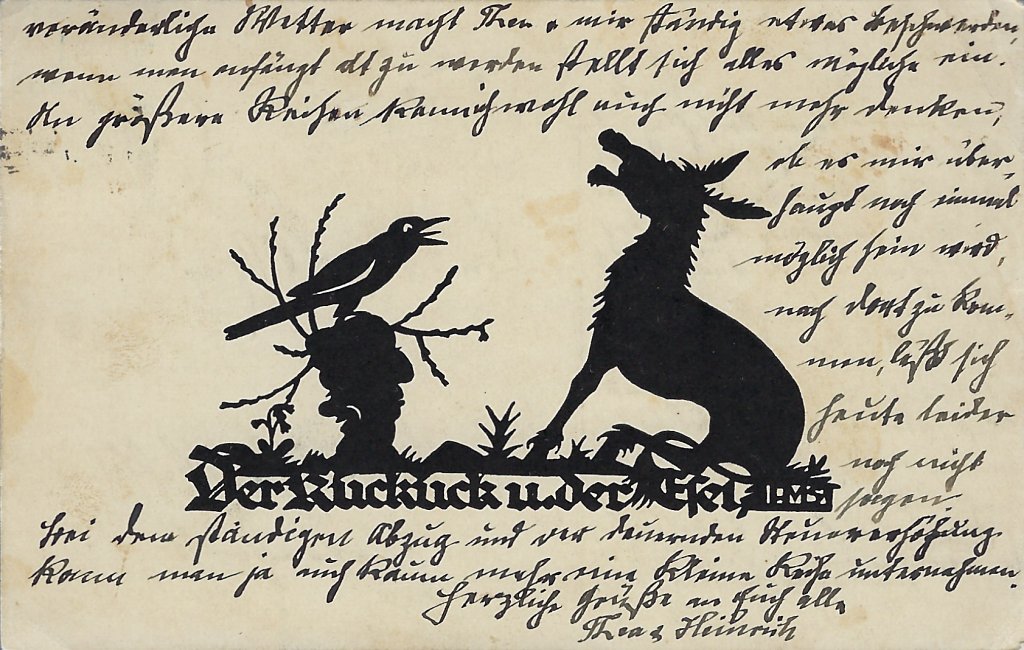 veränderliche Wetter macht Thea & mir ständig etwas Beschwerden,
wenn man anfängt alt zu werden stellt sich alles mögliche ein.
An größere Reisen kann ich wohl auch nicht mehr denken,
ob es mir über-
haupt noch einmal
möglich sein wird,
nach dort zu kom-
men, läßt sich
heute leider
noch nicht
sagen.
Der Kuckuck u. der Esel,
HMS
bei dem ständigen Abzug und der dauernden Steuererhöhung
kann man ja auch kaum mehr eine kleine Reise unternehmen.
Herzliche Grüße an Euch alle
Thea & Heinrich